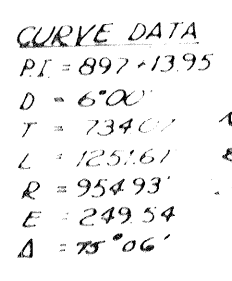 CURVE DATA
P.I. = 897+13.95
D = 6°00'
T = 734.07
L = 1251.67
R = 954.93'
E = 249.54
Δ = 75°06'